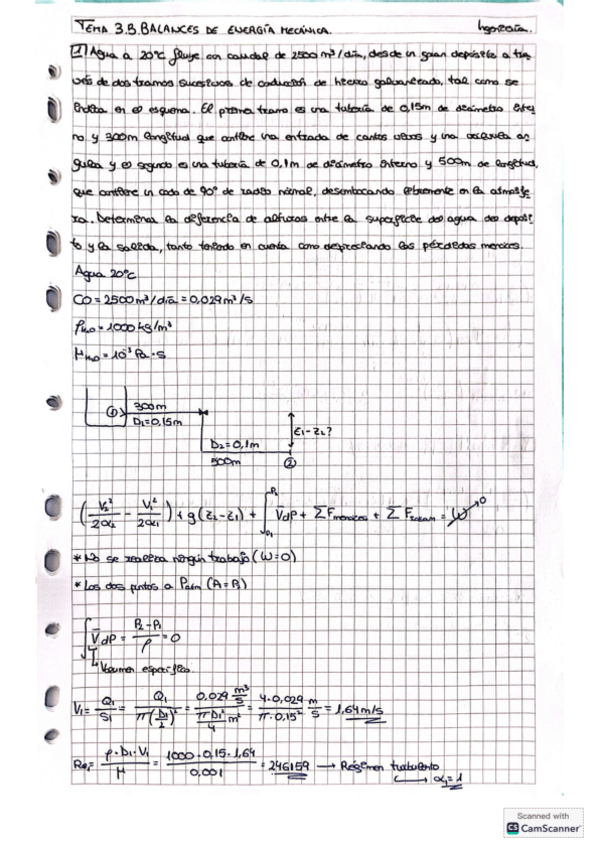 TEMA 3.B. BALANCES DE ENERGÍA MECÁNICA. Ingeniería.
1 Agua a 20ºC fluye con caudal de 2500 m³/día, desde un gran depósito a tra-
vés de dos tramos sucesivos de conducción de hierro galvanizado, tal como se
indica en el esquema. El primer tramo es una tubería de 0,15m de diámetro inter-
no y 300m longitud que contiene una entrada de cantos vivos y una
y el segundo es una tubería de 0,1m de diámetro interno y 500m de longitud,
que contiene un codo de 90º de radio normal, desembocando libremente en la atmósfe-
ra. Determinar la diferencia de alturas entre la superficie del agua del depósi-
to y la salida, tanto teniendo en cuenta como despreciando las pérdidas menores.
Agua 20ºC
CO = 2500 m³/día = 0,029 m³/s
ρH₂O = 1000 kg/m³
μH₂O = 10⁻³ Pa·s
① 300m
D₁=0,15m
z₁-z₂?
D₂=0,1m
500m ②
(V₂²/2α₂ - V₁²/2α₁) + g(z₂-z₁) + ∫P₁P₂ VdP + ΣFmenores + ΣF = W → 0
* No se realiza ningún trabajo (W=0)
* Los dos puntos a Patm (P₁=P₂)
∫VdP = P₂-P₁/ρ = 0
Volumen específico.
V₁ = Q₁/S₁ = Q₁/π(D₁/2)² = 0,029 m³/s / πD₁²/4 m² = 4·0,029/π·0,15² m/s = 1,64 m/s
Re₁ = ρ·D₁·V₁/μ = 1000·0,15·1,64/0,001 = 246159 → Régimen turbulento
→ α₁=1
Scanned with
CS CamScanner